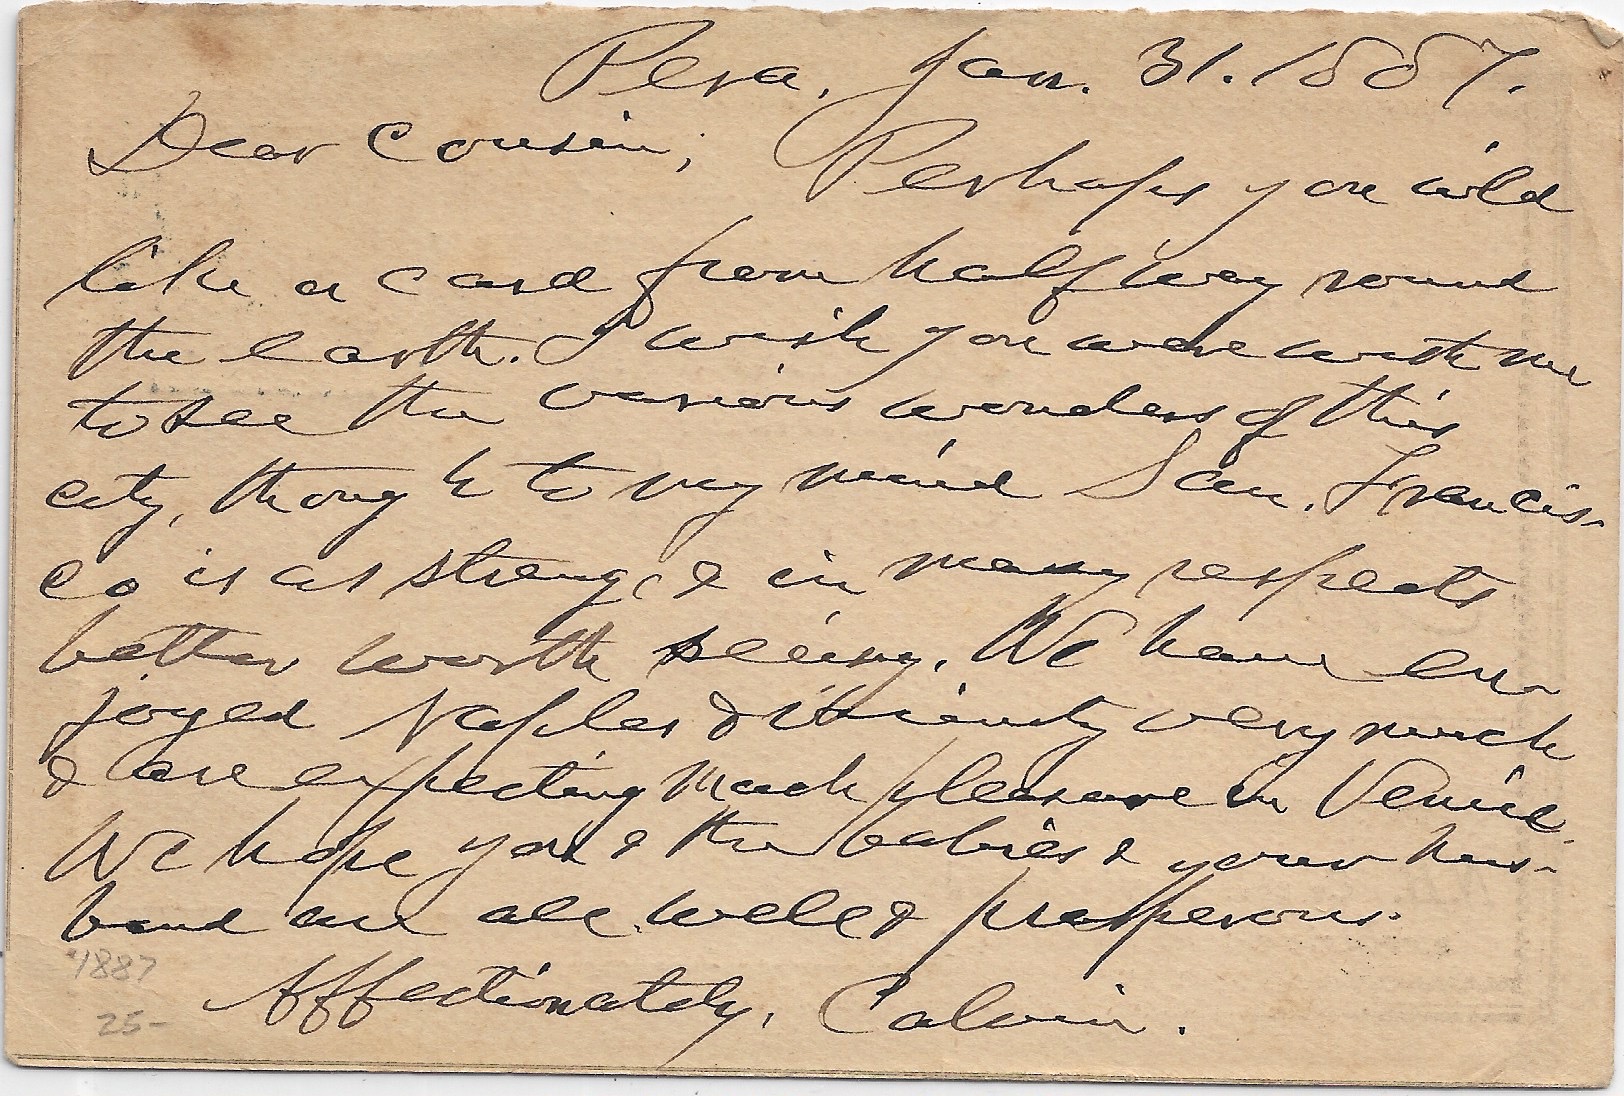 Pera, Jan. 31. 1887.
Dear Cousin, Perhaps you wld
like a card from half way round
the earth. I wish you were with me
to see the various wonders of this
city, though to my mind San. Francis-
co is as strange & in many respects
better worth seeing. We have en-
joyed Naples & vicinity very much
& are expecting much pleasure in Venice.
We hope you & the babies & your hus-
band are all well & prosperous.
Affectionately, Calvin.
1887
25-